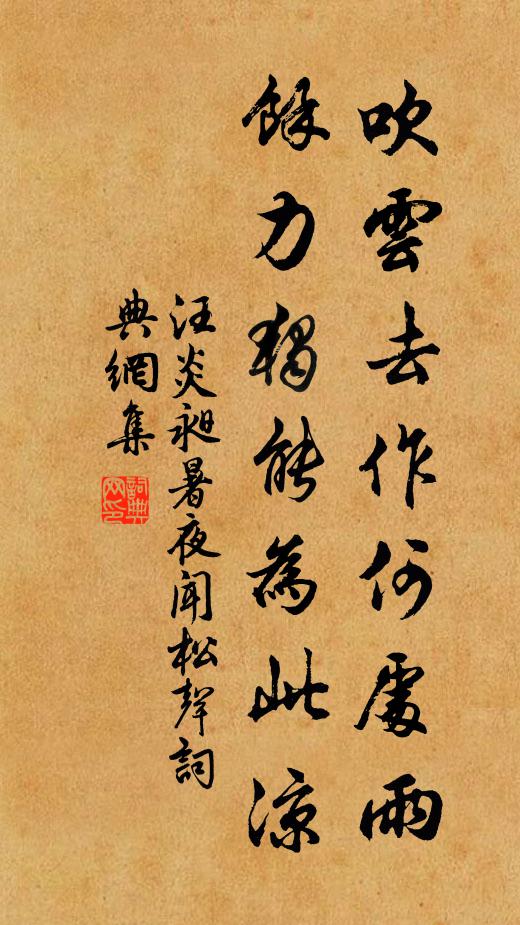 吹雲去作何處雨
餘力獨能為此涼
汪炎昶暑夜聞松聲詞
典網集
詞典
网印